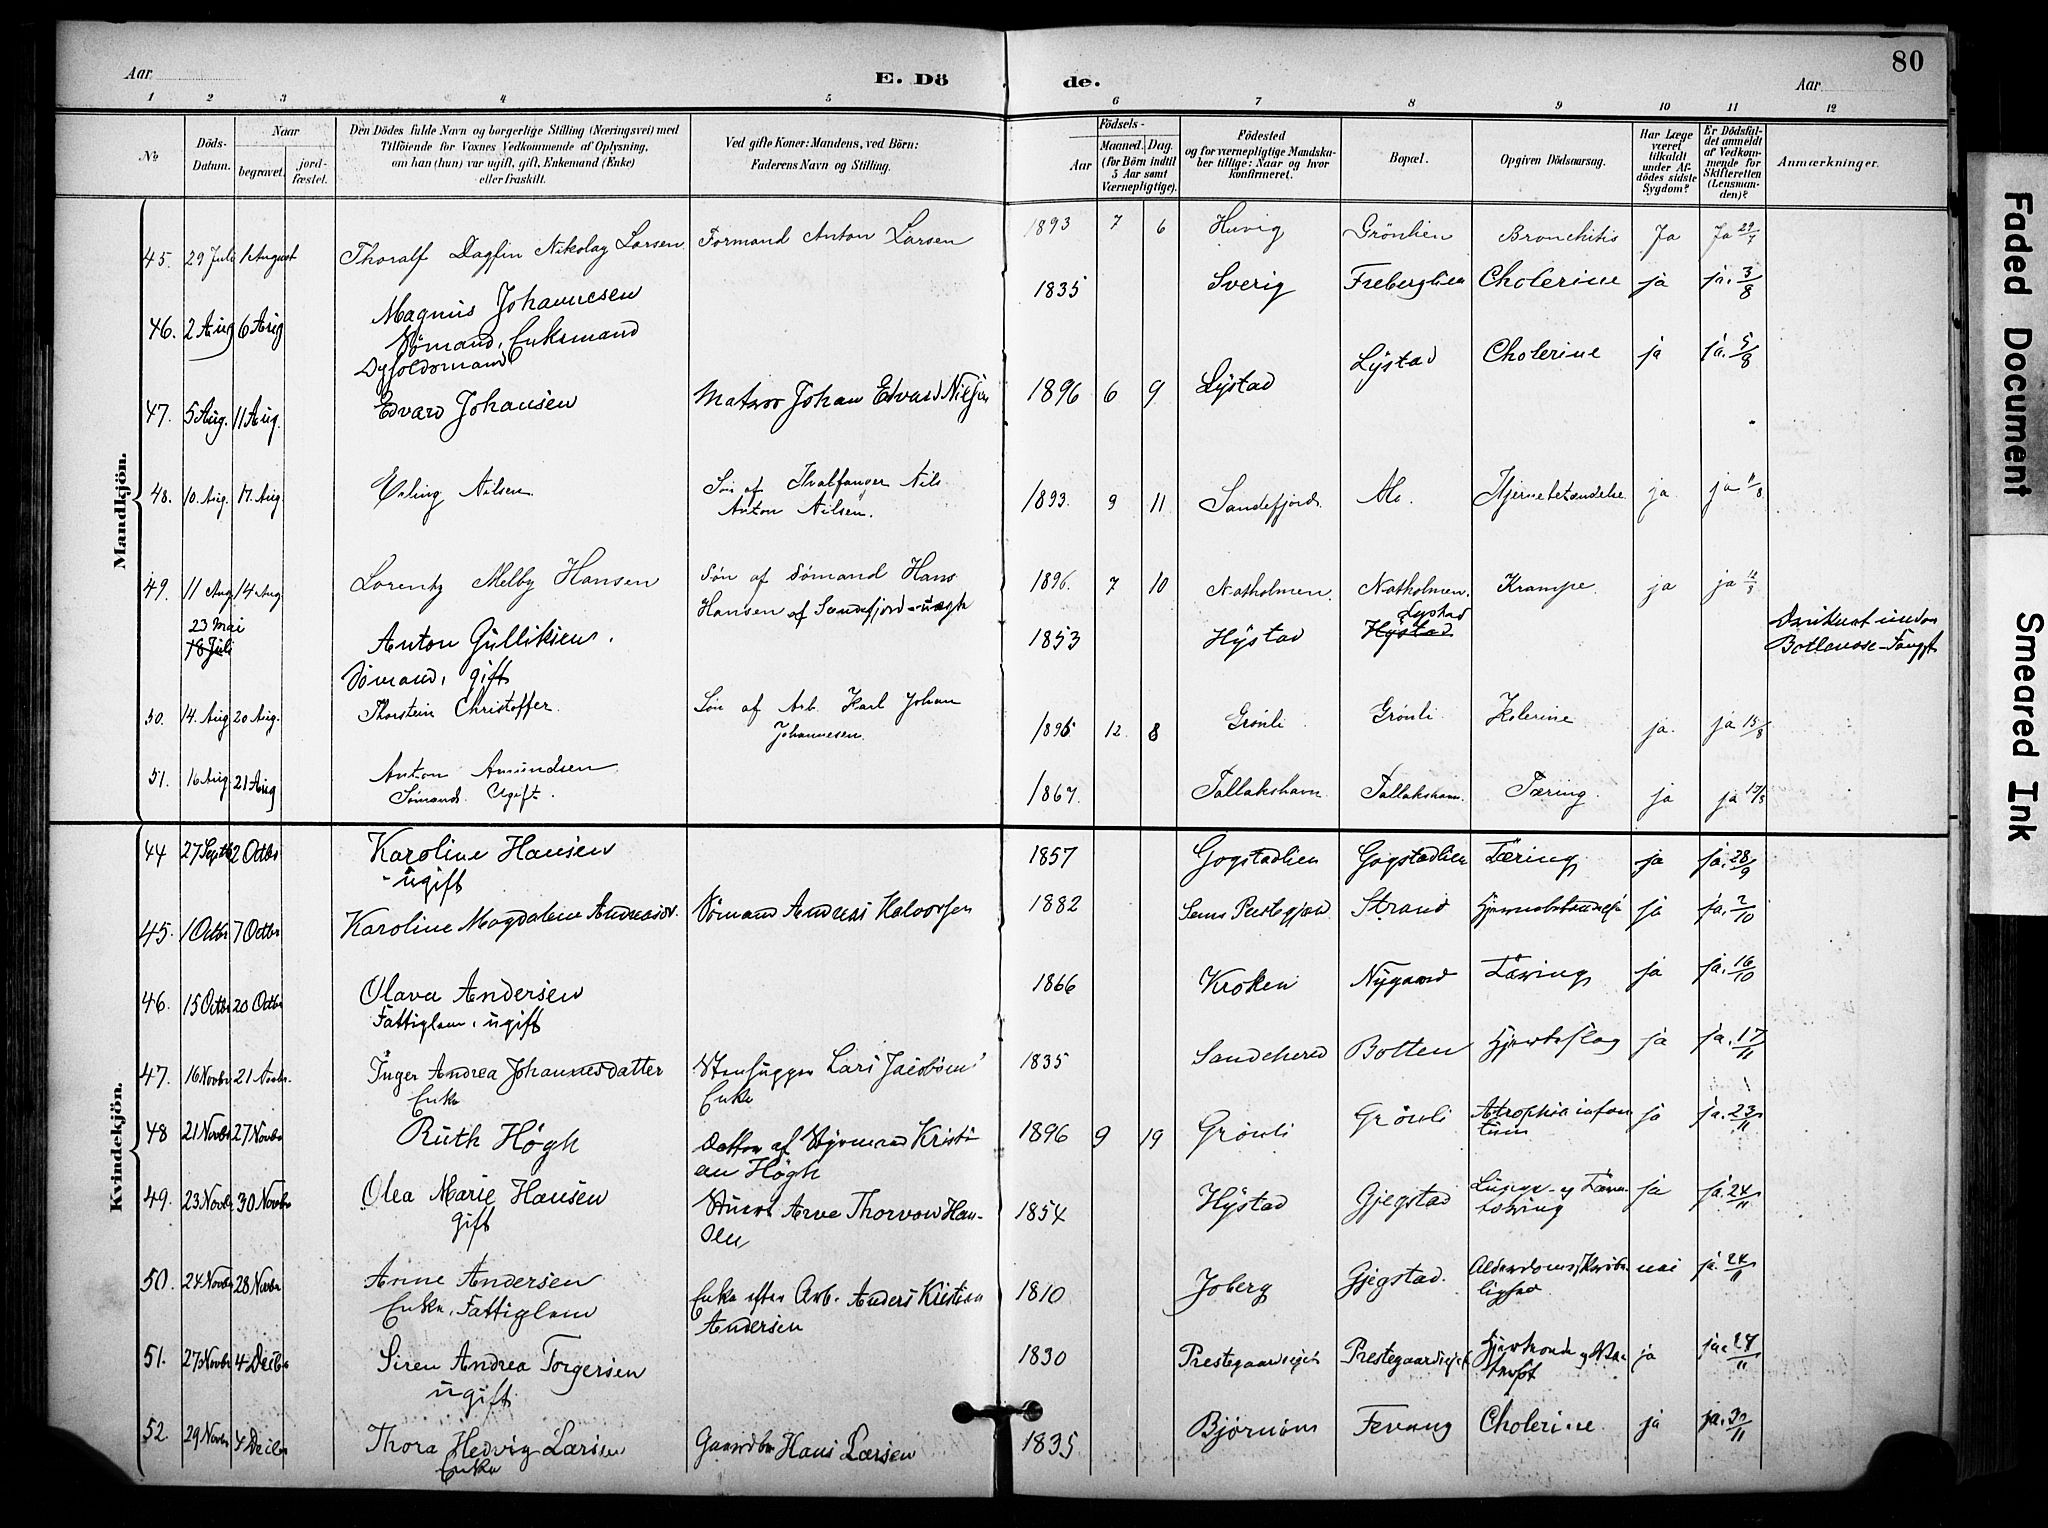 80
Aar
E. Dö
de.
Aar
1 2 3 4 5 6 7 8 9 10 11 12
No
Döds-Datum.
Naar
begravet.
jord-fæstet.
Den Dödes fulde Navn og borgerlige Stilling (Næringsvei) med
Tilföiende for Voxnes Vedkommende af Oplysning,
om han (hun) var ugift, gift, Enkemand (Enke)
eller fraskilt.
Ved gifte Koner: Mandens, ved Börn:
Faderens Navn og Stilling.
Födsels-
Aar
Maaned. Dag.
(for Börn indtil
5 Aar samt
Værnepligtige).
Födested
og for værnepligtige Mandska-
ber tillige: Naar og hvor
konfirmeret.
Bopæl.
Opgiven Dödsaarsag.
Har Læge
været
tilkaldt
under Af-
dödes sidste
Sygdom?
Er Dödsfal-
det anmeldt
af Vedkom-
mende for
Skifteretten
(Lensman-
den)?
Anmærkninger.
Mandkjön.
45. 29 Juli 1 August Thoralf Dagfin Nikolay Larsen Formand Anton Larsen 1893 7 6 Huvig Grönlien Bronchitis Ja Ja 29/7
46. 2 Aug 6 Aug Magnus Johannesen 1835 Sverig Freberglien Cholerine ja ja. 3/8
Sømand, Enkemand
47. 5 Aug. 11 Aug. Edvard Johansen Matros Johan Edvard Nilsen 1896 6 9 Lystad Lystad Cholerine ja ja. 5/8
48. 10. Aug. 17. Aug. Erling Nilsen Søn af Hvalfanger Nils
Anton Nilsen. 1893. 9 11 Sandefjord Hjernebetændelse ja ja 11/8
49. 11 Aug 14 Aug Lorentz Melby Hansen Søn af Sømand Hans
Hansen af Sandefjord - uægte 1896. 7 10 Natholmen. Natholmen. Krampe. ja ja 12/8
23 Mai
18 Juli Anton Gulliksen.
Sømand, gift 1853 Hystad Lystad
Hystad
Druknet under
Botlenose-Fangst
50. 14. Aug 20 Aug. Thorstein Christoffer. Søn af Arb. Karl Johan
Johannesen. 1895 12. 8 Grønli Grønli. Kolerine ja. ja 15/8
51. 16 Aug 21 Aug Anton Amundsen
Sømand. Ugift. 1867. Tallakshavn Tallakshavn. Tæring. ja ja 17/8
Kvindekjön.
44 27 Septb 2 Octbr Karoline Hansen
- ugift 1857 Gogstadlien Gogstadlien Tæring ja ja. 28/9
45. 1 Octbr 7 Octbr Karoline Magdalene Sømand Andreas Halvorsen 1882 Sems Prestegjeld Strand ja ja. 2/10
46. 15 Octbr 20 Octbr Olava Andersen
Fattiglem, ugift 1866 Kroken Nygaard Tæring ja ja. 16/10
47. 16 Novbr 21 Novbr. Inger Andrea Johannesdatter
Enke Stenhugger Lars Jacobsens
Enke 1835 Sandehered Botten Hjerteslag ja ja. 17/11
48 21 Novbr 27 Novbr Ruth Høgh Datter af Styrmand Kristi
an Høgh 1896 9 19 Grönli Grönli Atrophia infan
tum ja ja. 23/11
49. 23 Novbr 30 Novbr Olea Marie Hansen
gift Thorvald Han-
sen 1854 Hystad Gjegstad Lunge- og
tæring ja ja. 24/11
50. 24 Novbr 28 Novbr Anne Andersen
Enke, Fattiglem Enke efter Arb. Anders Kristian
Andersen 1810 Joberg Gjegstad. Alderdoms Skrøbe-
lighed nei ja. 24/11
51. 27 Novbr 4 Decbr Siren Andrea Torgersen
ugift 1830 Prestegaardseiet Prestegaardseiet ja ja 28/11
52. 29 Novbr 4 Decbr Thora Hedvig Larsen
Enke Gaardbr Hans Larsen 1835 Bjørnum Fevang Cholerine. ja ja. 30/11
Faded Document
Smeared Ink